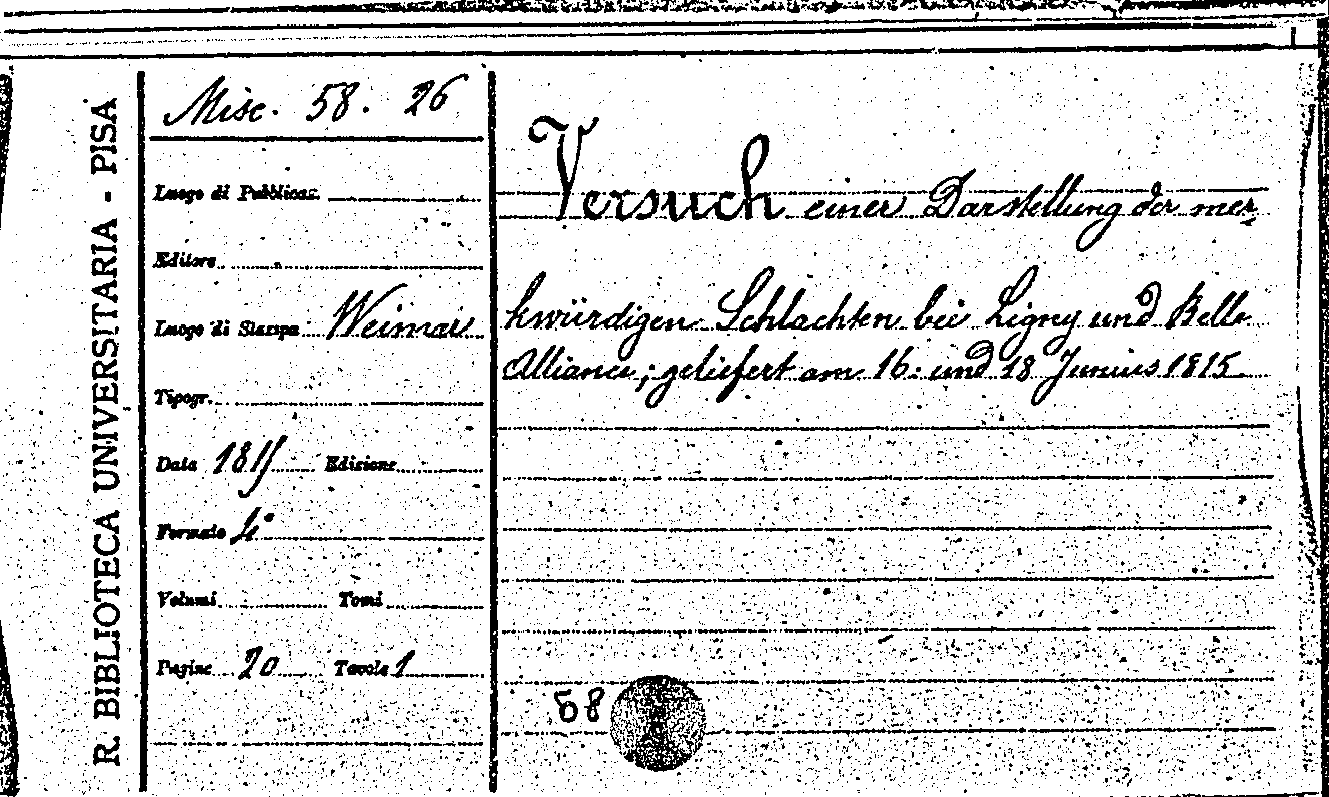 R. BIBLIOTECA UNIVERSITARIA - PISA
Misc. 58. 26
Luogo di Pubblicaz.
Editore
Luogo di Stampa Weimar
Tipogr.
Data 1815 Edizione
Formato 4°
Volumi Tomi
Pagine 20 Tavole 1
Versuch einer Darstellung der mer
kwürdigen Schlachten bei Ligny und Belle
Alliance; geliefert am 16. und 18 Junius 1815.
58